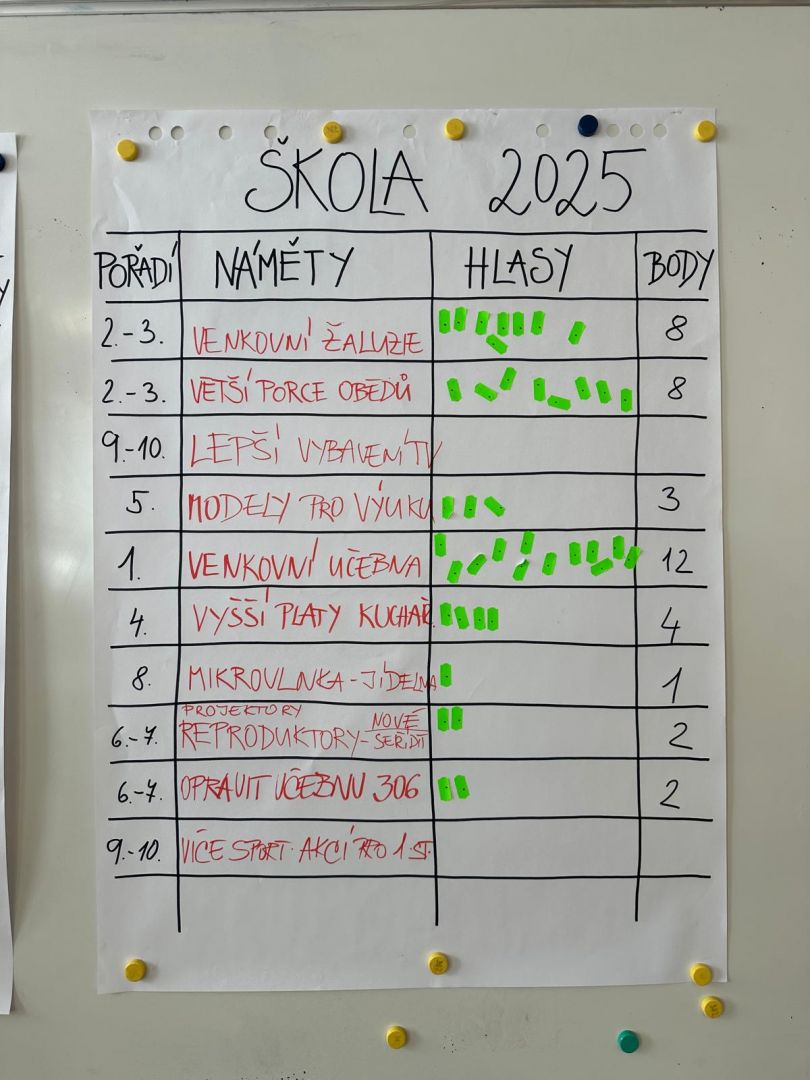 ŠKOLA 2025
POŘADÍ NÁMĚTY HLASY BODY
2.-3. VENKOVNÍ ŽALUZIE 8
2.-3. VĚTŠÍ PORCE OBĚDŮ 8
9.-10. LEPŠÍ VYBAVENÍ TV
5. MODELY PRO VÝUKU 3
1. VENKOVNÍ UČEBNA 12
4. VYŠŠÍ PLATY KUCHAŘ. 4
8. MIKROVLNKA - JÍDELNA 1
PROJEKTORY
6.-7. REPRODUKTORY - NOVÉ SEŘÍDIT 2
6.-7. OPRAVIT UČEBNU 306 2
9.-10. VÍCE SPORT. AKCÍ PRO 1.ST.